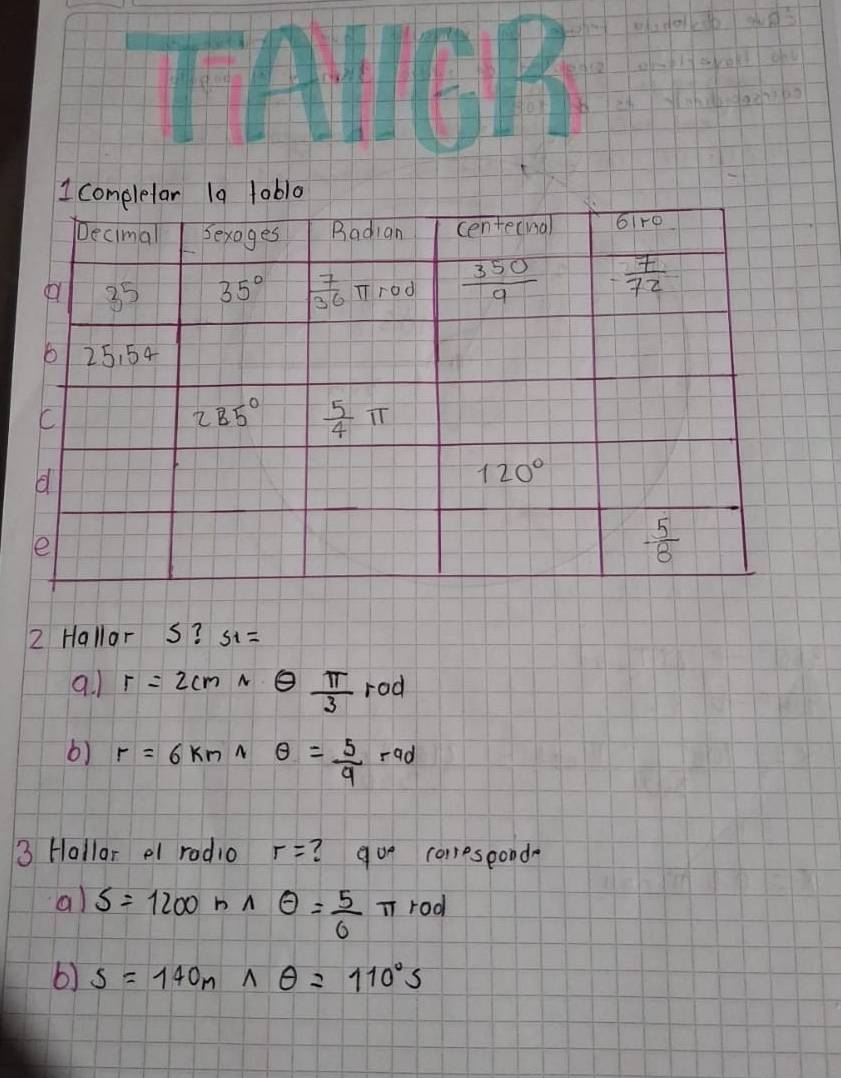 TAllER
1 Completar la tabla
Decimal Sexages Radian Centecimal Giro
a 35 35° 7/36 π rad 350/9 7/72
b 25,54
c 285° 5/4 π
d 120°
e 5/8
2 Hallar S? si=
a.) r = 2cm ∧ θ π/3 rad
b) r = 6 Km ∧ θ = 5/9 rad
3 Hallar el radio r=? que corresponde
a) S = 1200 n ∧ θ = 5/6 π rad
b) S = 140m ∧ θ = 110°s